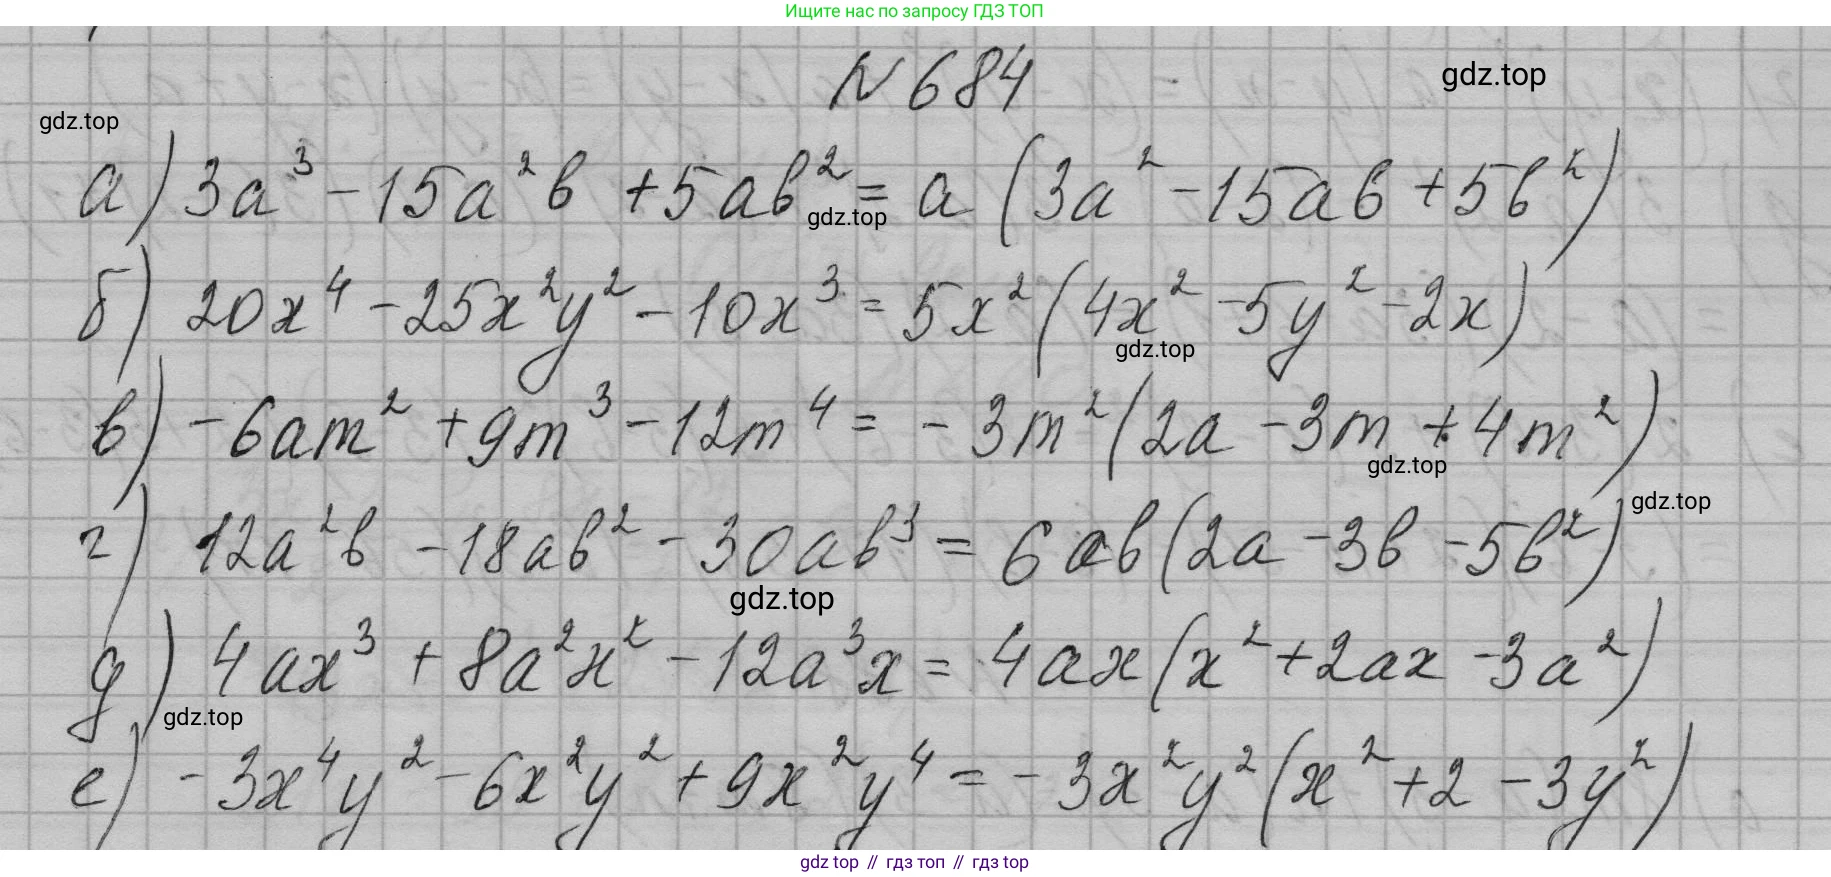 Ищите нас по запросу ГДЗ ТОП
N 684
gdz.top
gdz.top
а) 3a³ - 15a²b + 5ab² = a (3a² - 15ab + 5b²)
gdz.top
б) 20x⁴ - 25x²y² - 10x³ = 5x² (4x² - 5y² - 2x)
gdz.top
в) - 6am² + 9m³ - 12m⁴ = - 3m² (2a - 3m + 4m²)
gdz.top
gdz.top
г) 12a²b - 18ab² - 30ab³ = 6ab (2a - 3b - 5b²)
gdz.top
д) 4ax³ + 8a²x² - 12a³x = 4ax (x² + 2ax - 3a²)
gdz.top
е) - 3x⁴y² - 6x²y² + 9x²y⁴ = - 3x²y² (x² + 2 - 3y²)
gdz top // гдз топ // гдз top